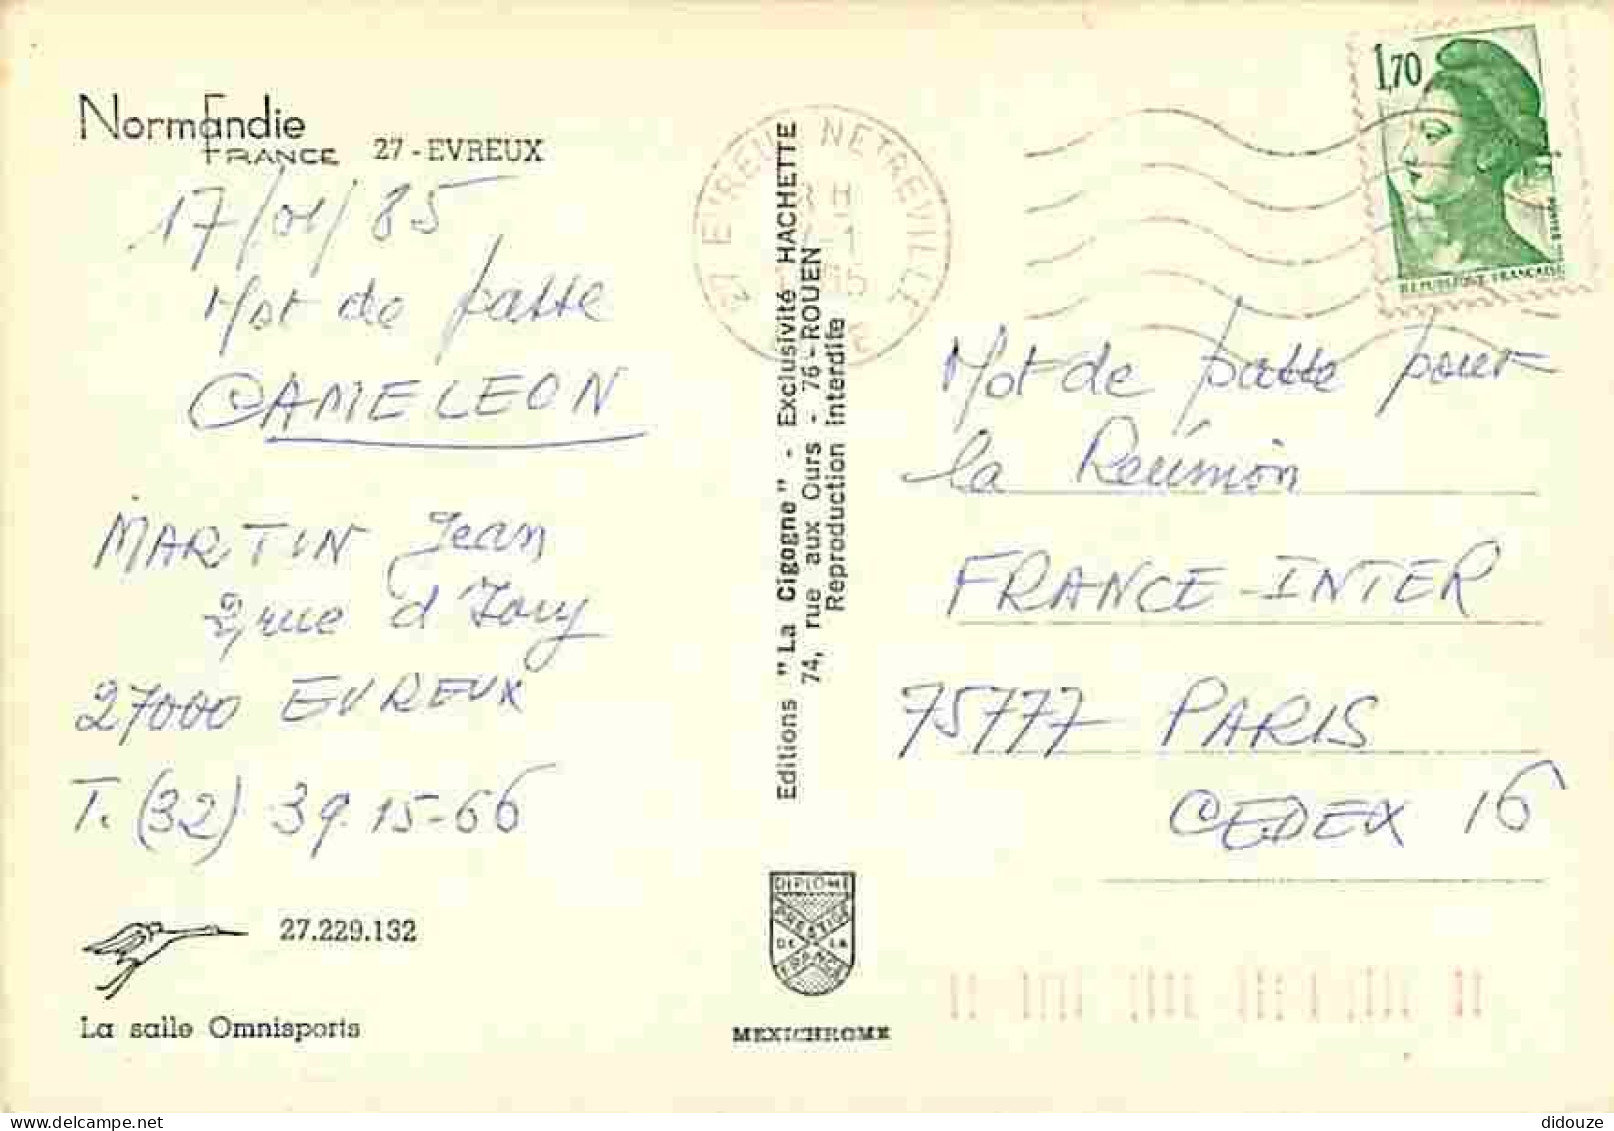 Normandie
FRANCE 27 - EVREUX
17/01/85
Mot de passe
CAMELEON
MARTIN Jean
2, rue d'Ivry
27000 EVREUX
T. (32) 39.15-66
27.229.132
La salle Omnisports
Editions "La Cigogne" - Exclusivité HACHETTE
74, rue aux Ours - 76 - ROUEN
Reproduction interdite
DIPLOME
PRESTIGE
DE LA
FRANCE
MEXICHROME
27 EVREUX NETREVILLE
1,70
POSTES
REPUBLIQUE FRANÇAISE
Mot de passe pour
la Réunion
FRANCE-INTER
75777 PARIS
CEDEX 16
didouze